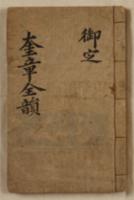 御定
奎章全韻